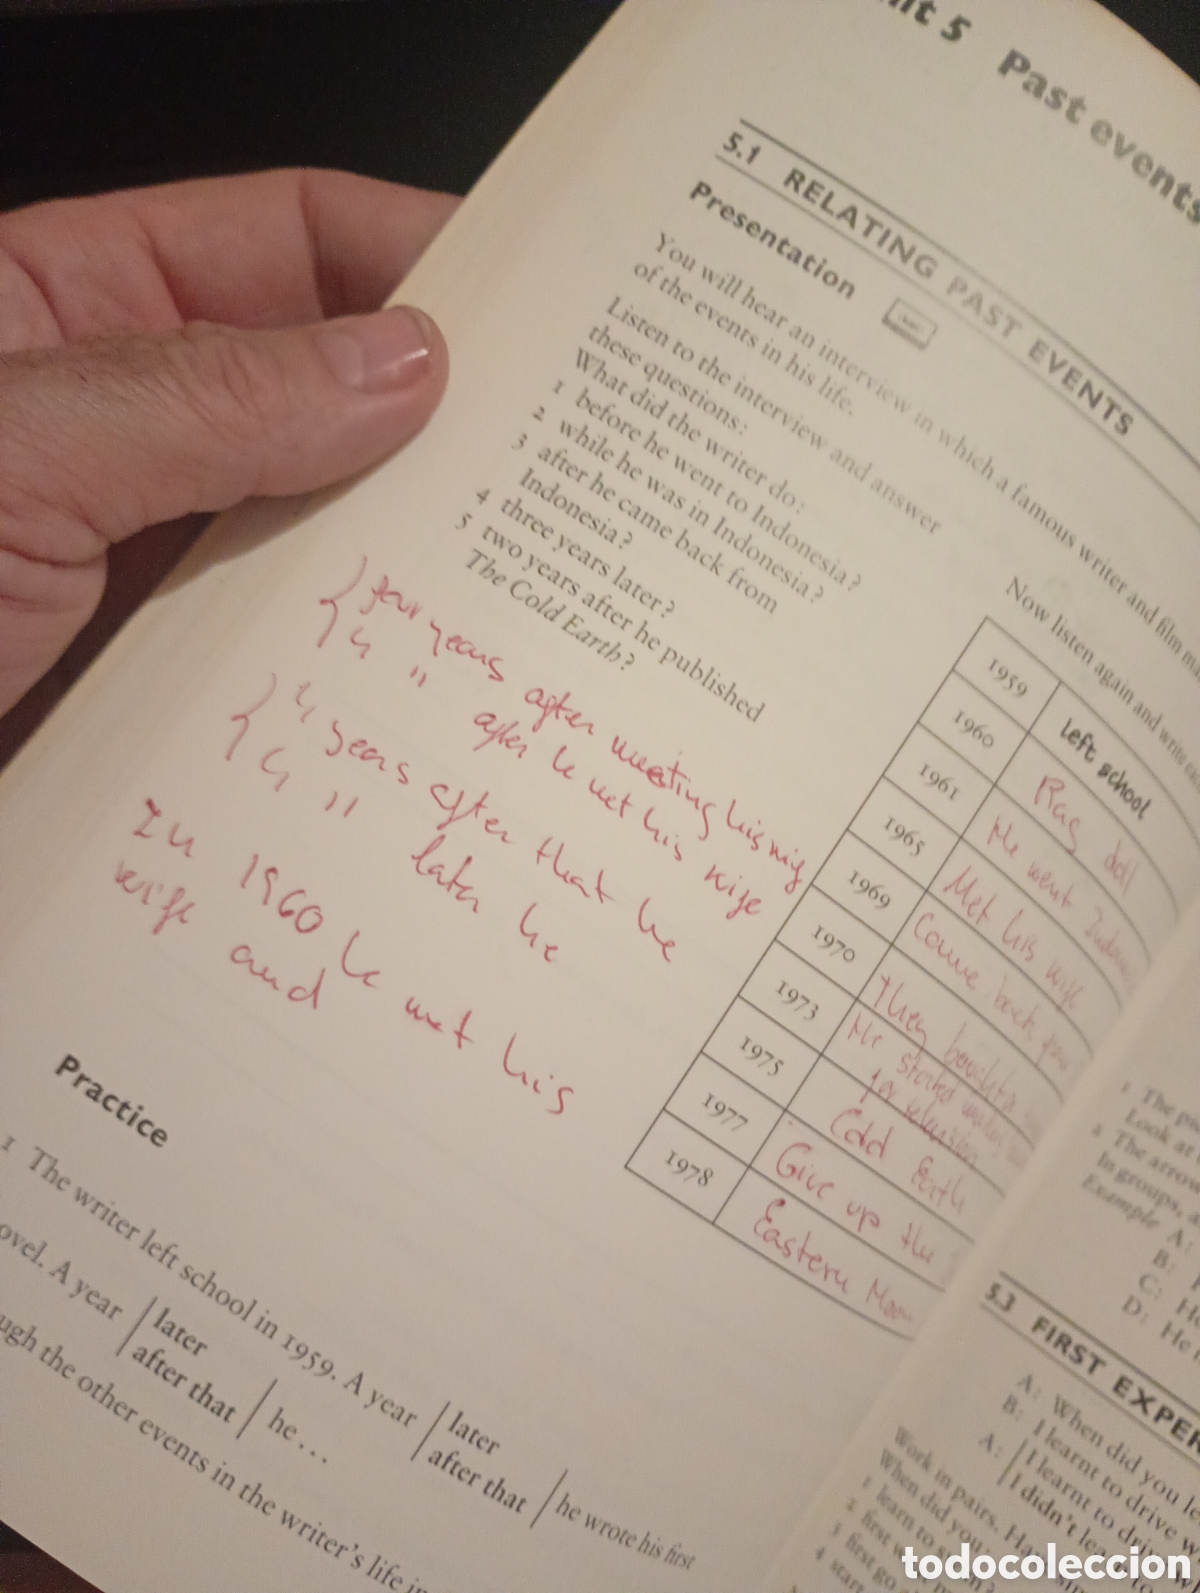 5 Past events
5.1 RELATING PAST EVENTS
Presentation
You will hear an interview in which a famous writer and film
of the events in his life.
Listen to the interview and answer
these questions:
What did the writer do:
1 before he went to Indonesia?
2 while he was in Indonesia?
3 after he came back from
Indonesia?
4 three years later?
5 two years after he published
The Cold Earth?
four years after meeting his wife
4 " after he met his wife
4 years after that he
4 " later he
In 1960 he met his
wife and
Now listen again and write
1959 left school
1960 Rag doll
1961 He went
1965 Met his wife
1969 Come back
1970 They bought a
1973 He started
for television
1975 Cold Earth
1977 Give up the
1978 Eastern Moon
Practice
1 The writer left school in 1959. A year later / after that he wrote his first
novel. A year later / after that he ...
the other events in the writer's life
1 The
Look at
2 The arrow
In groups,
Example A:
B:
C: He
D: He
5.3 FIRST
A: When did you
B: I learnt to drive
A: I learnt to
I didn't
Work in pairs.
When did you
1 learn to
2 first
3 first go
4 start
todocoleccion